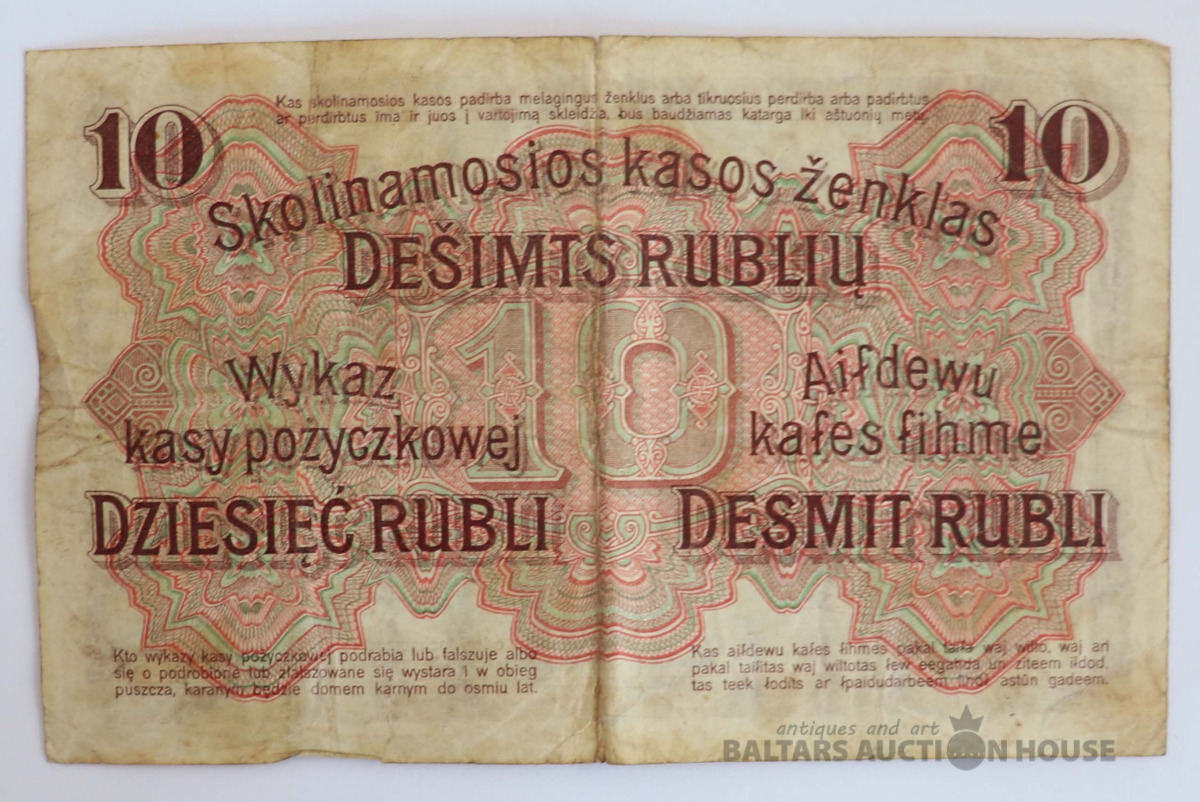 Kas skolinamosios kasos padirba melagingus ženklus arba tikruosius perdirba arba padirbtus
ar perdirbtus ima ir juos į vartojimą skleidžia, bus baudžiamas katarga iki aštuonių metų.
10
10
Skolinamosios kasos ženklas
DEŠIMTS RUBLIŲ
10
Wykaz
kasy pożyczkowej
DZIESIĘĆ RUBLI
Aiſdewu
kaſes ſihme
DESMIT RUBLI
Kto wykazy kasy pożyczkowej podrabia lub falszuje albo
się o podrobione lub zfalszowane się wystara i w obieg
puszcza, karanym będzie domem karnym do osmiu lat.
Kas aiſdewu kaſes ſihmes pakał taiſa waj wilto, waj arī
pakal taiſitas waj wiltotas ſew eegahdā un ziteem iſdod,
tas teek ſodīts ar ſpaidudarbeem lihdſ astūn gadeem.
antiques and art
BALTARS AUCTION HOUSE